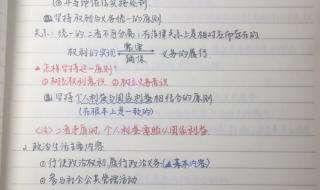 ⑶坚持权利与义务统一的原则
关系：统一的，二者不可分离；在法律关系上是相对应而存在的
权利的实现 义务的履行
怎样坚持这一原则？
①树立权利意识 ②树立义务意识
坚持个人利益与国家利益相结合的原则
（在根本上是一致的）
二者矛盾时，个人利益服从国家利益
2.政治生活主要内容
①行使政治权利，履行政治义务（基本内容）
②参与社会公共管理活动